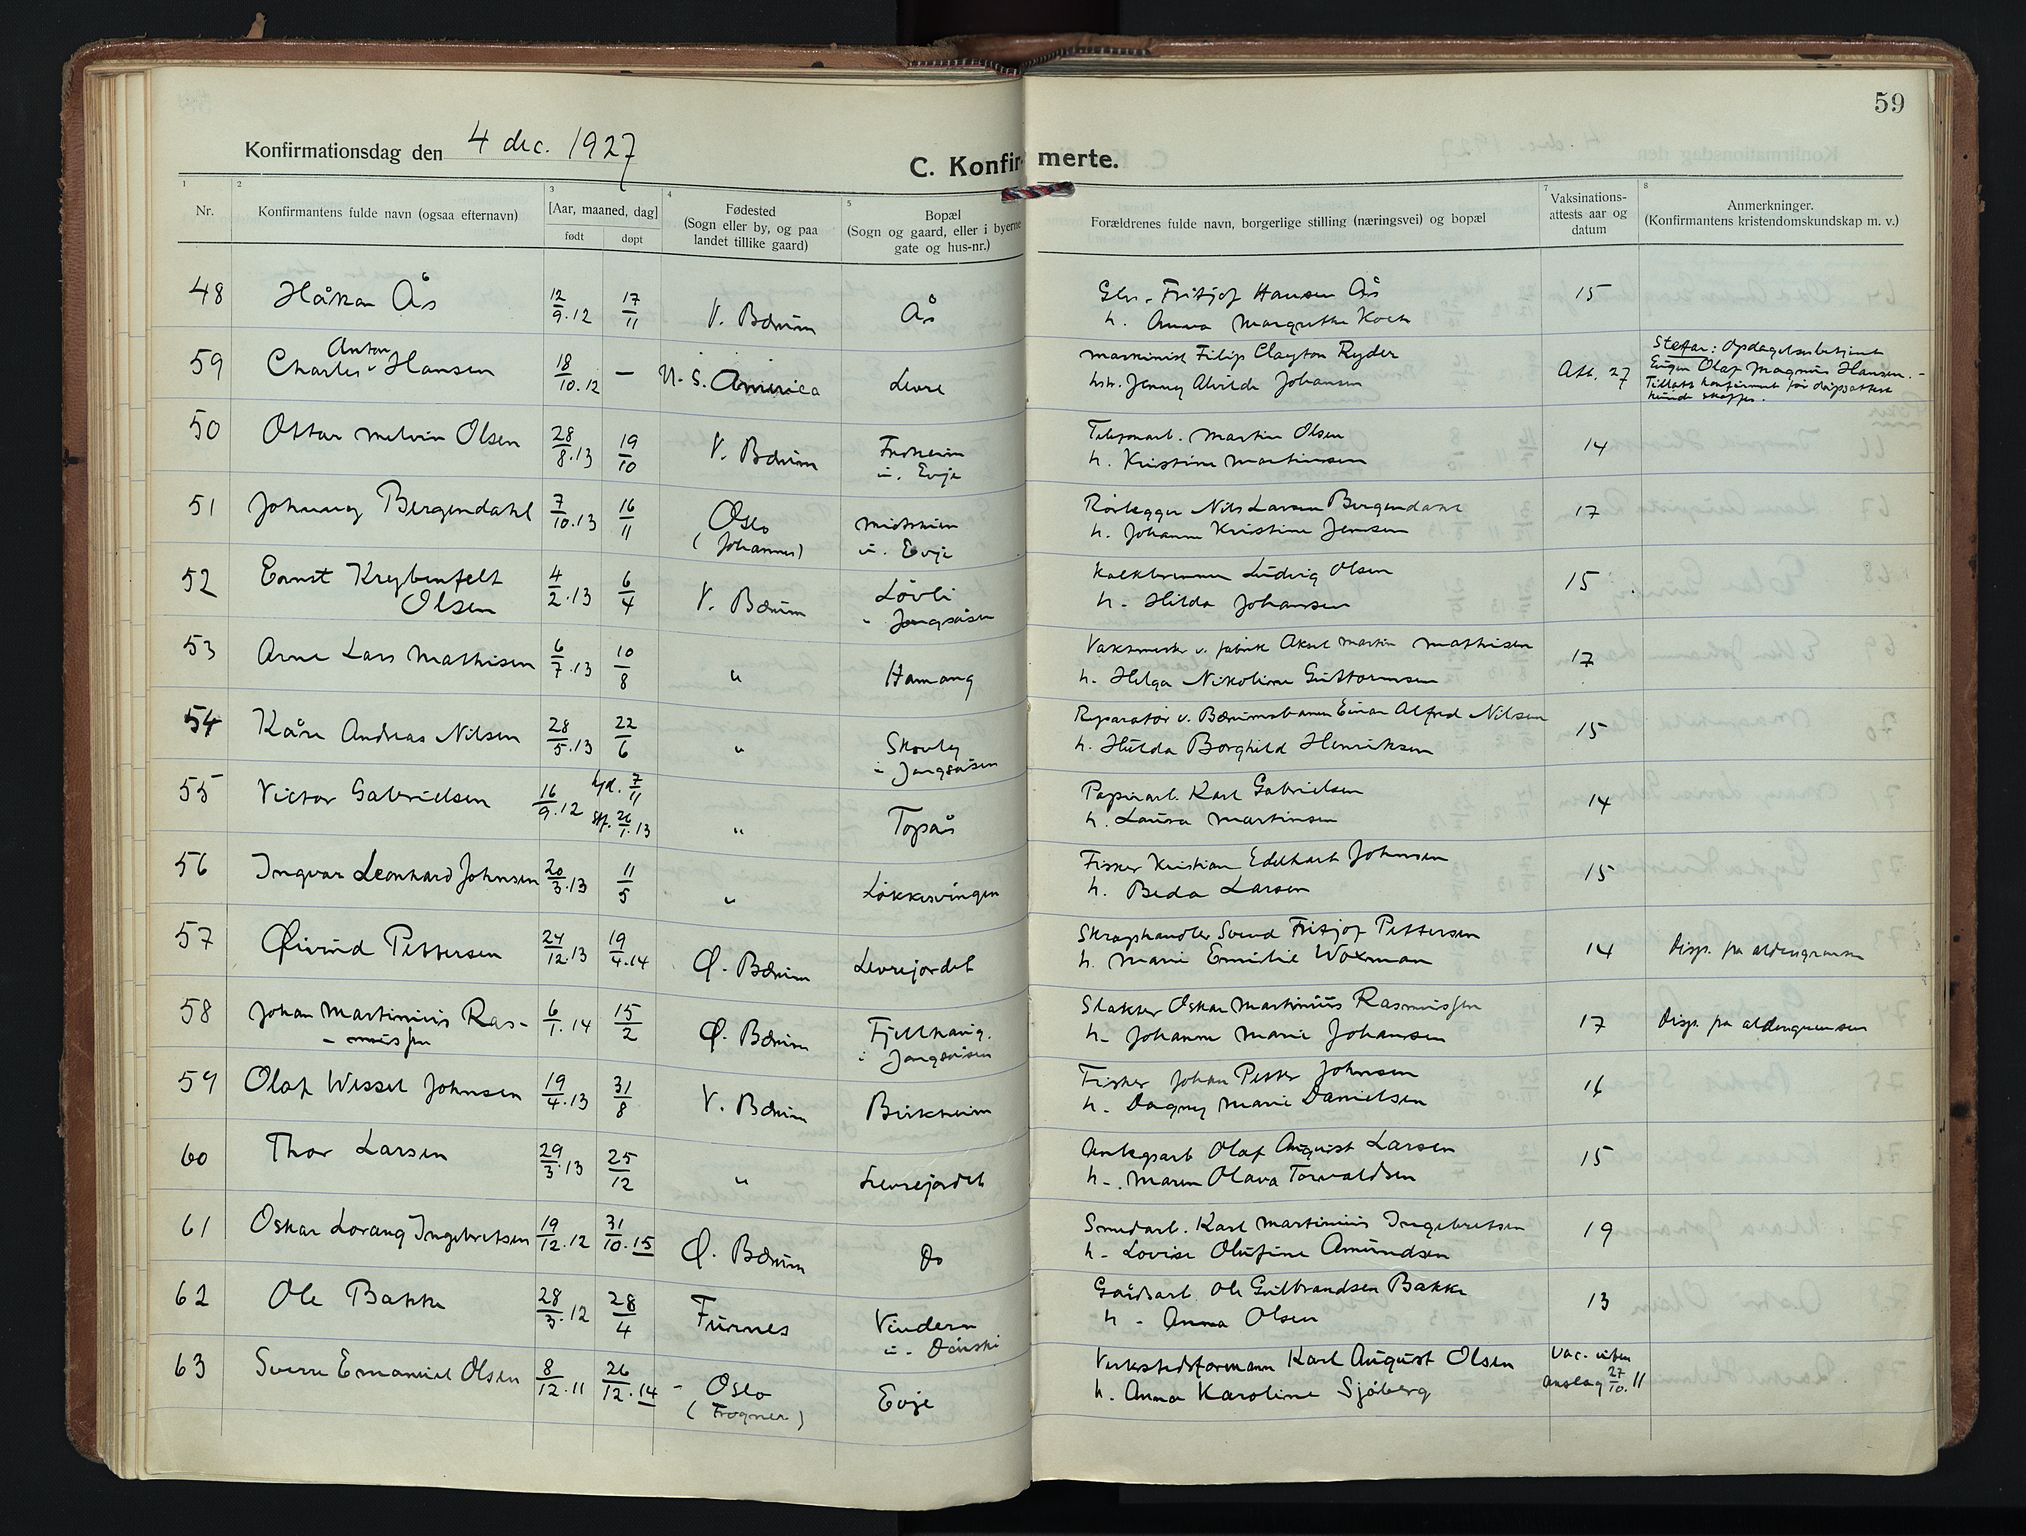 59
Konfirmationsdag den 4 dec. 1927
C. Konfirmerte.
1 2 3 4 5 7 8
Nr.
Konfirmantens fulde navn (ogsaa efternavn)
[Aar, maaned, dag]
født døpt
Fødested
(Sogn eller by, og paa
landet tillike gaard)
Bopæl
(Sogn og gaard, eller i byerne
gate og hus-nr.)
Forældrenes fulde navn, borgerlige stilling (næringsvei) og bopæl
Vaksinations-
attests aar og
datum
Anmerkninger.
(Konfirmantens kristendomskundskap m. v.)
48 Håkon Ås 12/9.12 17/11 V. Bærum Ås Fritjof Hansen Ås 15
h. Anna Margrethe Koch
59 Charles Anton Hansen 18/10.12 — U.S. America Levre Maskinist Filip Clayton Ryder Att. 27/7
hsh. Jenny Alvilde Johansen
Stefar: Opdagelsesbetjent
Eugen Olaf Magnus Hansen. -
Tillatt konfirmert før dåpsattest
kunde skaffes.
50 Ottar Melvin Olsen 28/8.13 19/10 V. Bærum Fredheim Telefonarb. Martin Olsen 14
i. Evje h. Kristine Martinsen
51 Johnny Bergendahl 7/10.13 16/11 Oslo Rørlegger Nils Larsen Bergendahl 17
(Johannes) i. Evje h. Johanne Kristine Jensen
52 Ernst Krybenfelt 4/2.13 6/4 V. Bærum Løvli Kalkbrenner Ludvig Olsen 15
Olsen Jongsåsen h. Hilda Johansen
53 Arne Lars Mathisen 6/7.13 10/8 " Hamang Vaktmester v. fabrik Aksel Martin Mathisen 17
h. Helga Nikoline Guttormsen
54 Kåre Andreas Nilsen 28/5.13 22/6 " Skovly Reparatør v. Bærumsbanen Einar Alfred Nilsen 15
i Jongsåsen h. Hulda Borghild Henriksen
55 Victor Gabrielsen 16/9.12 hjd. 7/11 " Topås Papirarb. Karl Gabrielsen 14
stf. 26/1.13 h. Laura Martinsen
56 Ingvar Leonhard Johnsen 20/3.13 11/5 " Løkkesvingen Fisker Kristian Edelhart Johnsen 15
h. Beda Larsen
57 Øivind Pettersen 24/12.13 19/4.14 Ø. Bærum Levrejordet Skraphandler Svend Fritjof Pettersen 14 Disp. fra aldersgrensen
h. Marie Emilie Woxman
58 Johan Martinius Ras- 6/1.14 15/2 Ø. Bærum Fjellhaug. Slakter Oskar Martinius Rasmussen 17 Disp. fra aldersgrensen
- mussen i Jongsåsen h. Johanne Marie Johansen
59 Olaf Wessel Johnsen 19/4.13 31/8 V. Bærum Birkheim Fisker Johan Petter Johnsen 16
h. Dagny Marie Danielsen
60 Thor Larsen 29/3.13 25/12 " Levrejordet Anlegsarb Olaf August Larsen 15
h. Maren Olava Torvaldsen
61 Oskar Lorang Ingebretsen 19/12.12 31/10.15 Ø. Bærum Do Smedarb. Karl Martinius Ingebretsen 19
h. Lovise Olufine Amundsen
62 Ole Bakke 28/3.12 28/4 Furnes Vindern Gårdsarb. Ole Gulbrandsen Bakke 13
h - Anna Olsen
63 Sverre Emanuel Olsen 8/12.11 26/12.14 - Oslo Evje Verkstedsformann Karl August Olsen Vac. uten
(Frogner) h. Anna Karoline Sjøberg anslag 27/10.11